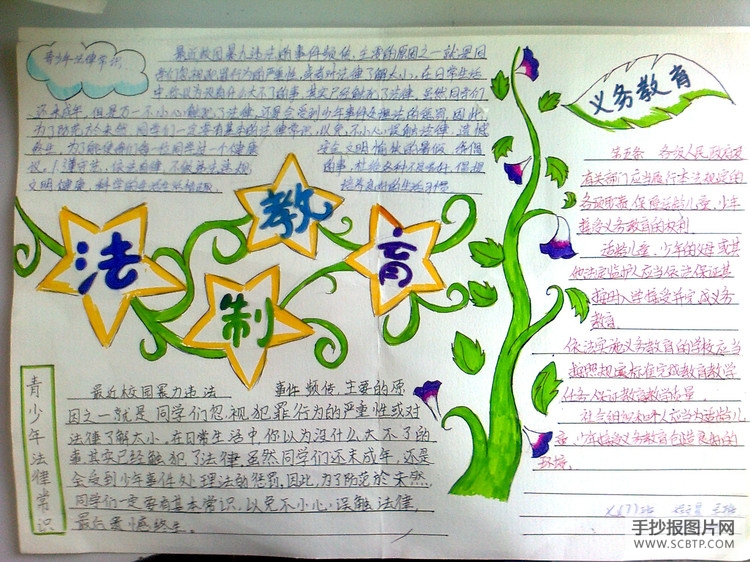 青少年法律常识
最近校园暴力违法的事件频传,主要的原因之一就是同
学们忽视犯罪行为的严重性,或者对法律了解太小,在日常生活
中,你以为没有什么大不了的事,其实已经触犯了法律,虽然同学们
还未成年,但是万一不小心触犯了法律,还是会受到少年事件处理法的惩罚,因此,
为了防范於未然,同学们一定要有基本的法律常识,以免不小心误触法律,遗憾
终生,为了能使我们每一位同学过一个健康
安全文明愉快的暑假
文明健康,科学的
法
教
制
育
青少年法律常识
最近校园暴力违法 事件频传,主要的原
因之一就是同学们忽视犯罪行为的严重性或对
法律了解太小,在日常生活中,你以为没什么大不了的
事其实已经触犯了法律,虽然同学们还未成年,还是
会受到少年事件处理法的惩罚,因此,为了防范於未然,
同学们一定要有基本常识,以免不小心误触法律,
最后遗憾终生。
义务教育
第五条 各级人民政府及
有关部门应当履行本法规定的
各项职责,保障适龄儿童、少年
接受义务教育的权利.
适龄儿童、少年的父母或其
他法定监护人应当依法保证其
按时入学接受并完成义务
教育.
依法实施义务教育的学校应当
按照规定标准完成教育教学
任务,保证教育教学质量.
社会组织和个人应当为适龄儿
童、少年接受义务教育创造良好的
环境.
手抄报图片网
WWW.SCBTP.COM